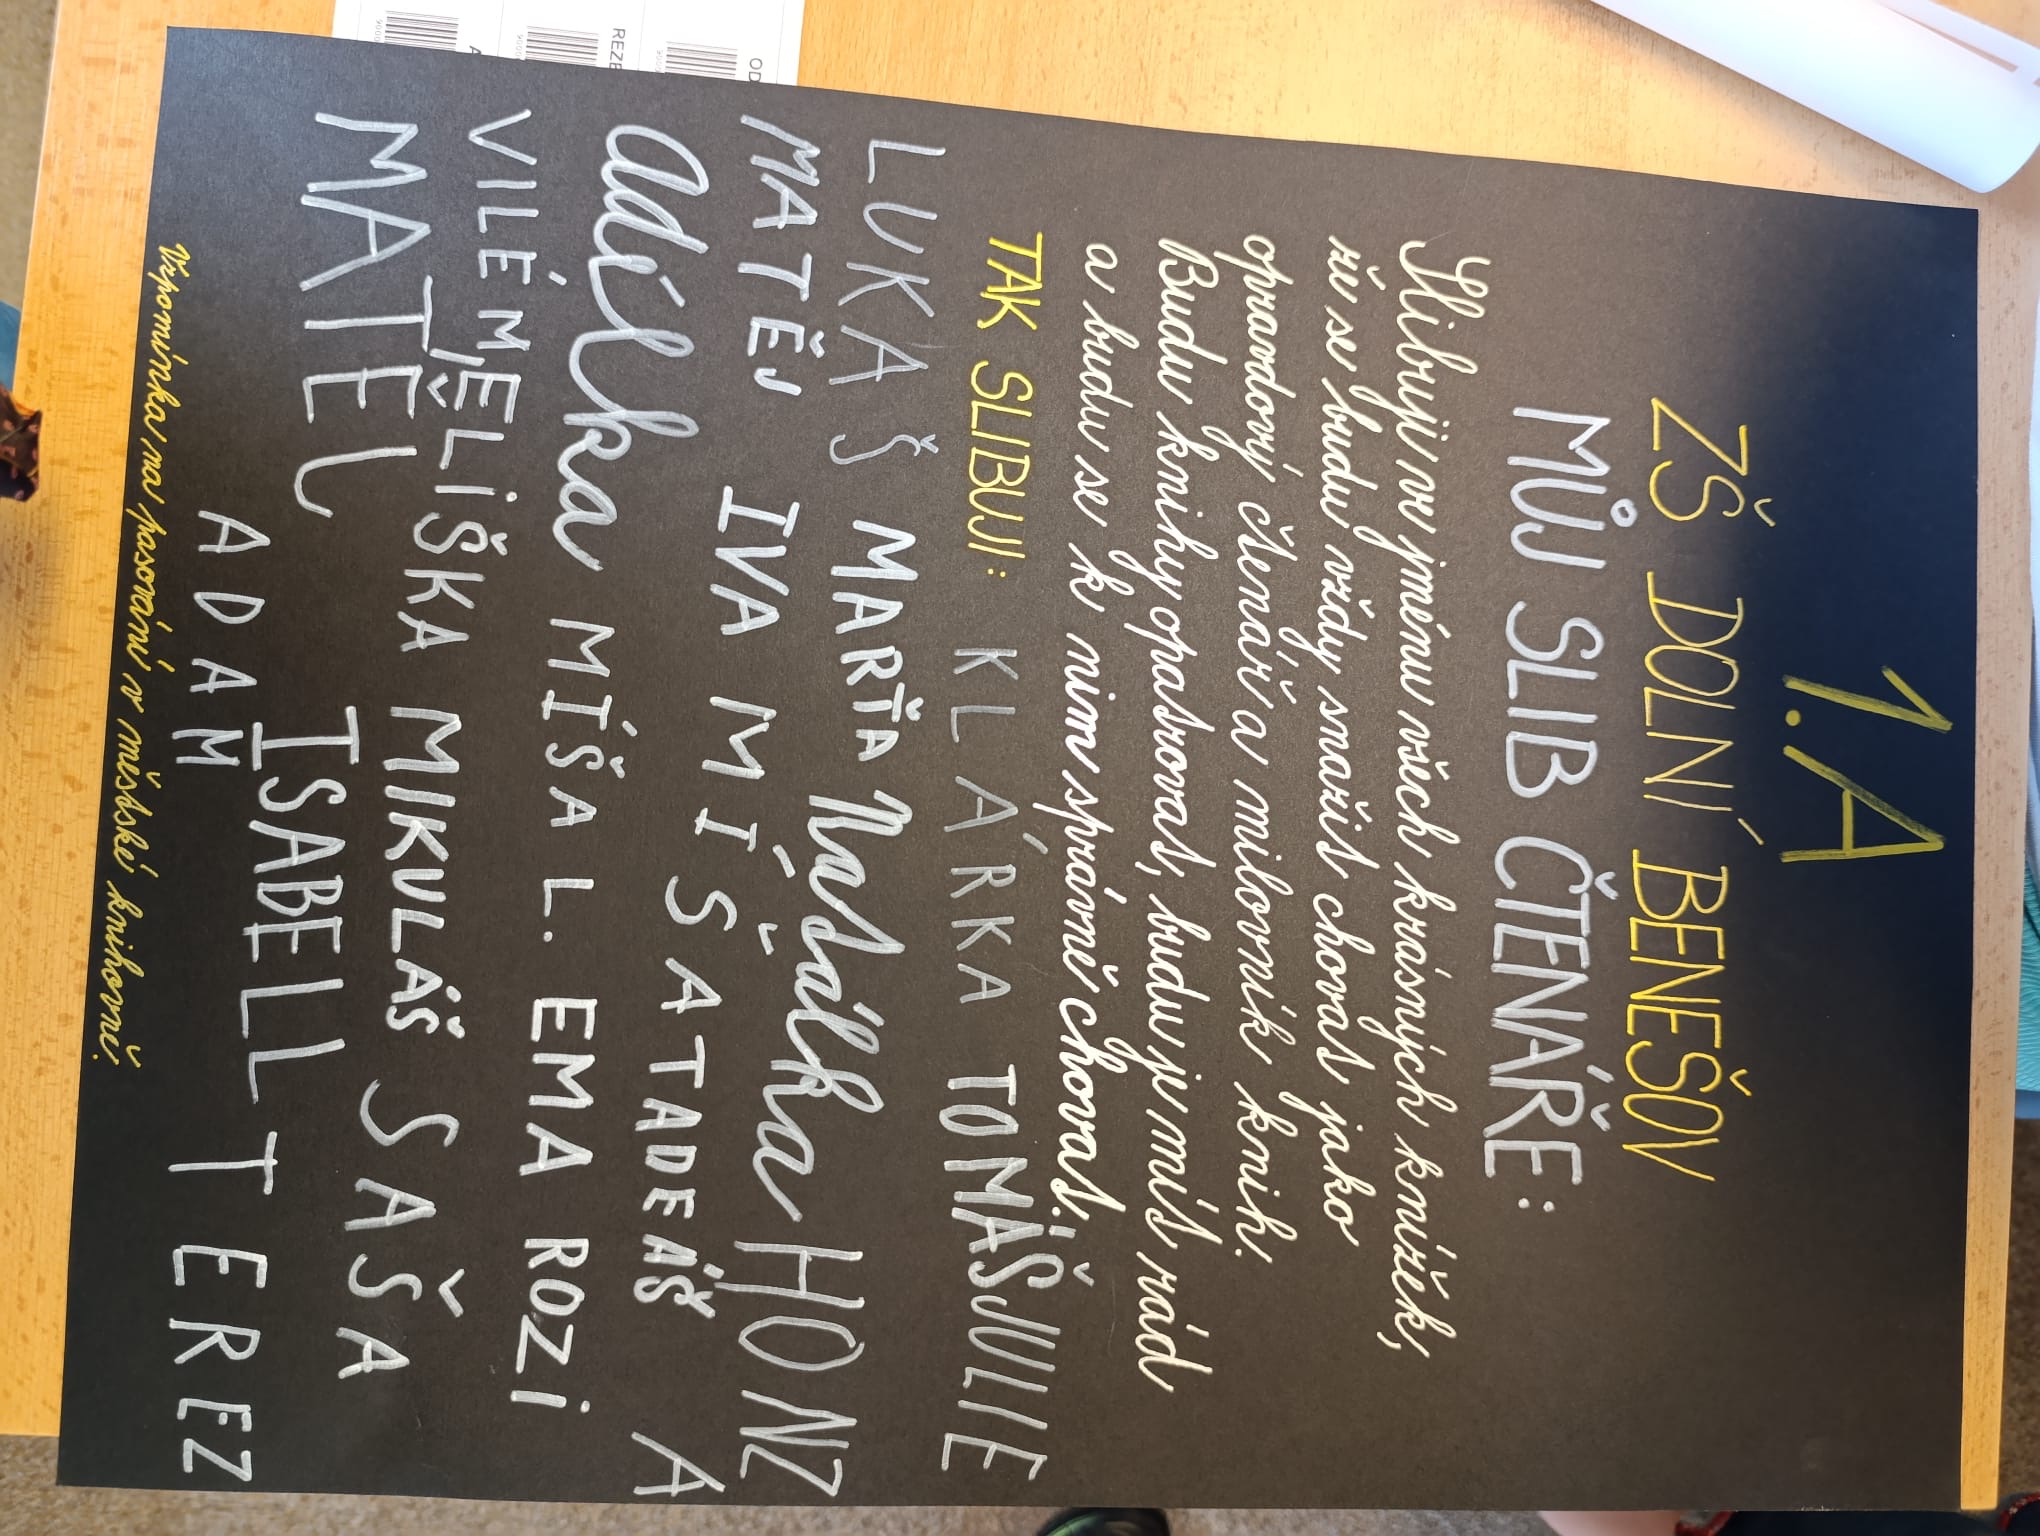 1.A
ZŠ DOLNÍ BENEŠOV
MŮJ SLIB ČTENÁŘE:
Slibuji ve jménu všech krásných knížek,
že se budu vždy snažit chovat jako
opravdový čtenář a milovník knih.
Budu knihy opatrovat, budu je mít rád
a budu se k nim správně chovat.
TAK SLIBUJI: KLÁRKA TOMÁŠ JULIE
LUKÁŠ MARŤA Natálka HONZ
A
MATĚJ IVA MÍŠA TADEÁŠ
Adélka MÍŠA L. EMA ROZI
VILÉM ELIŠKA MIKULÁŠ SAŠA
MATĚJ ISABELL TEREZ
ADAM
Vzpomínka na pasování v městské knihovně.
REZE
OD